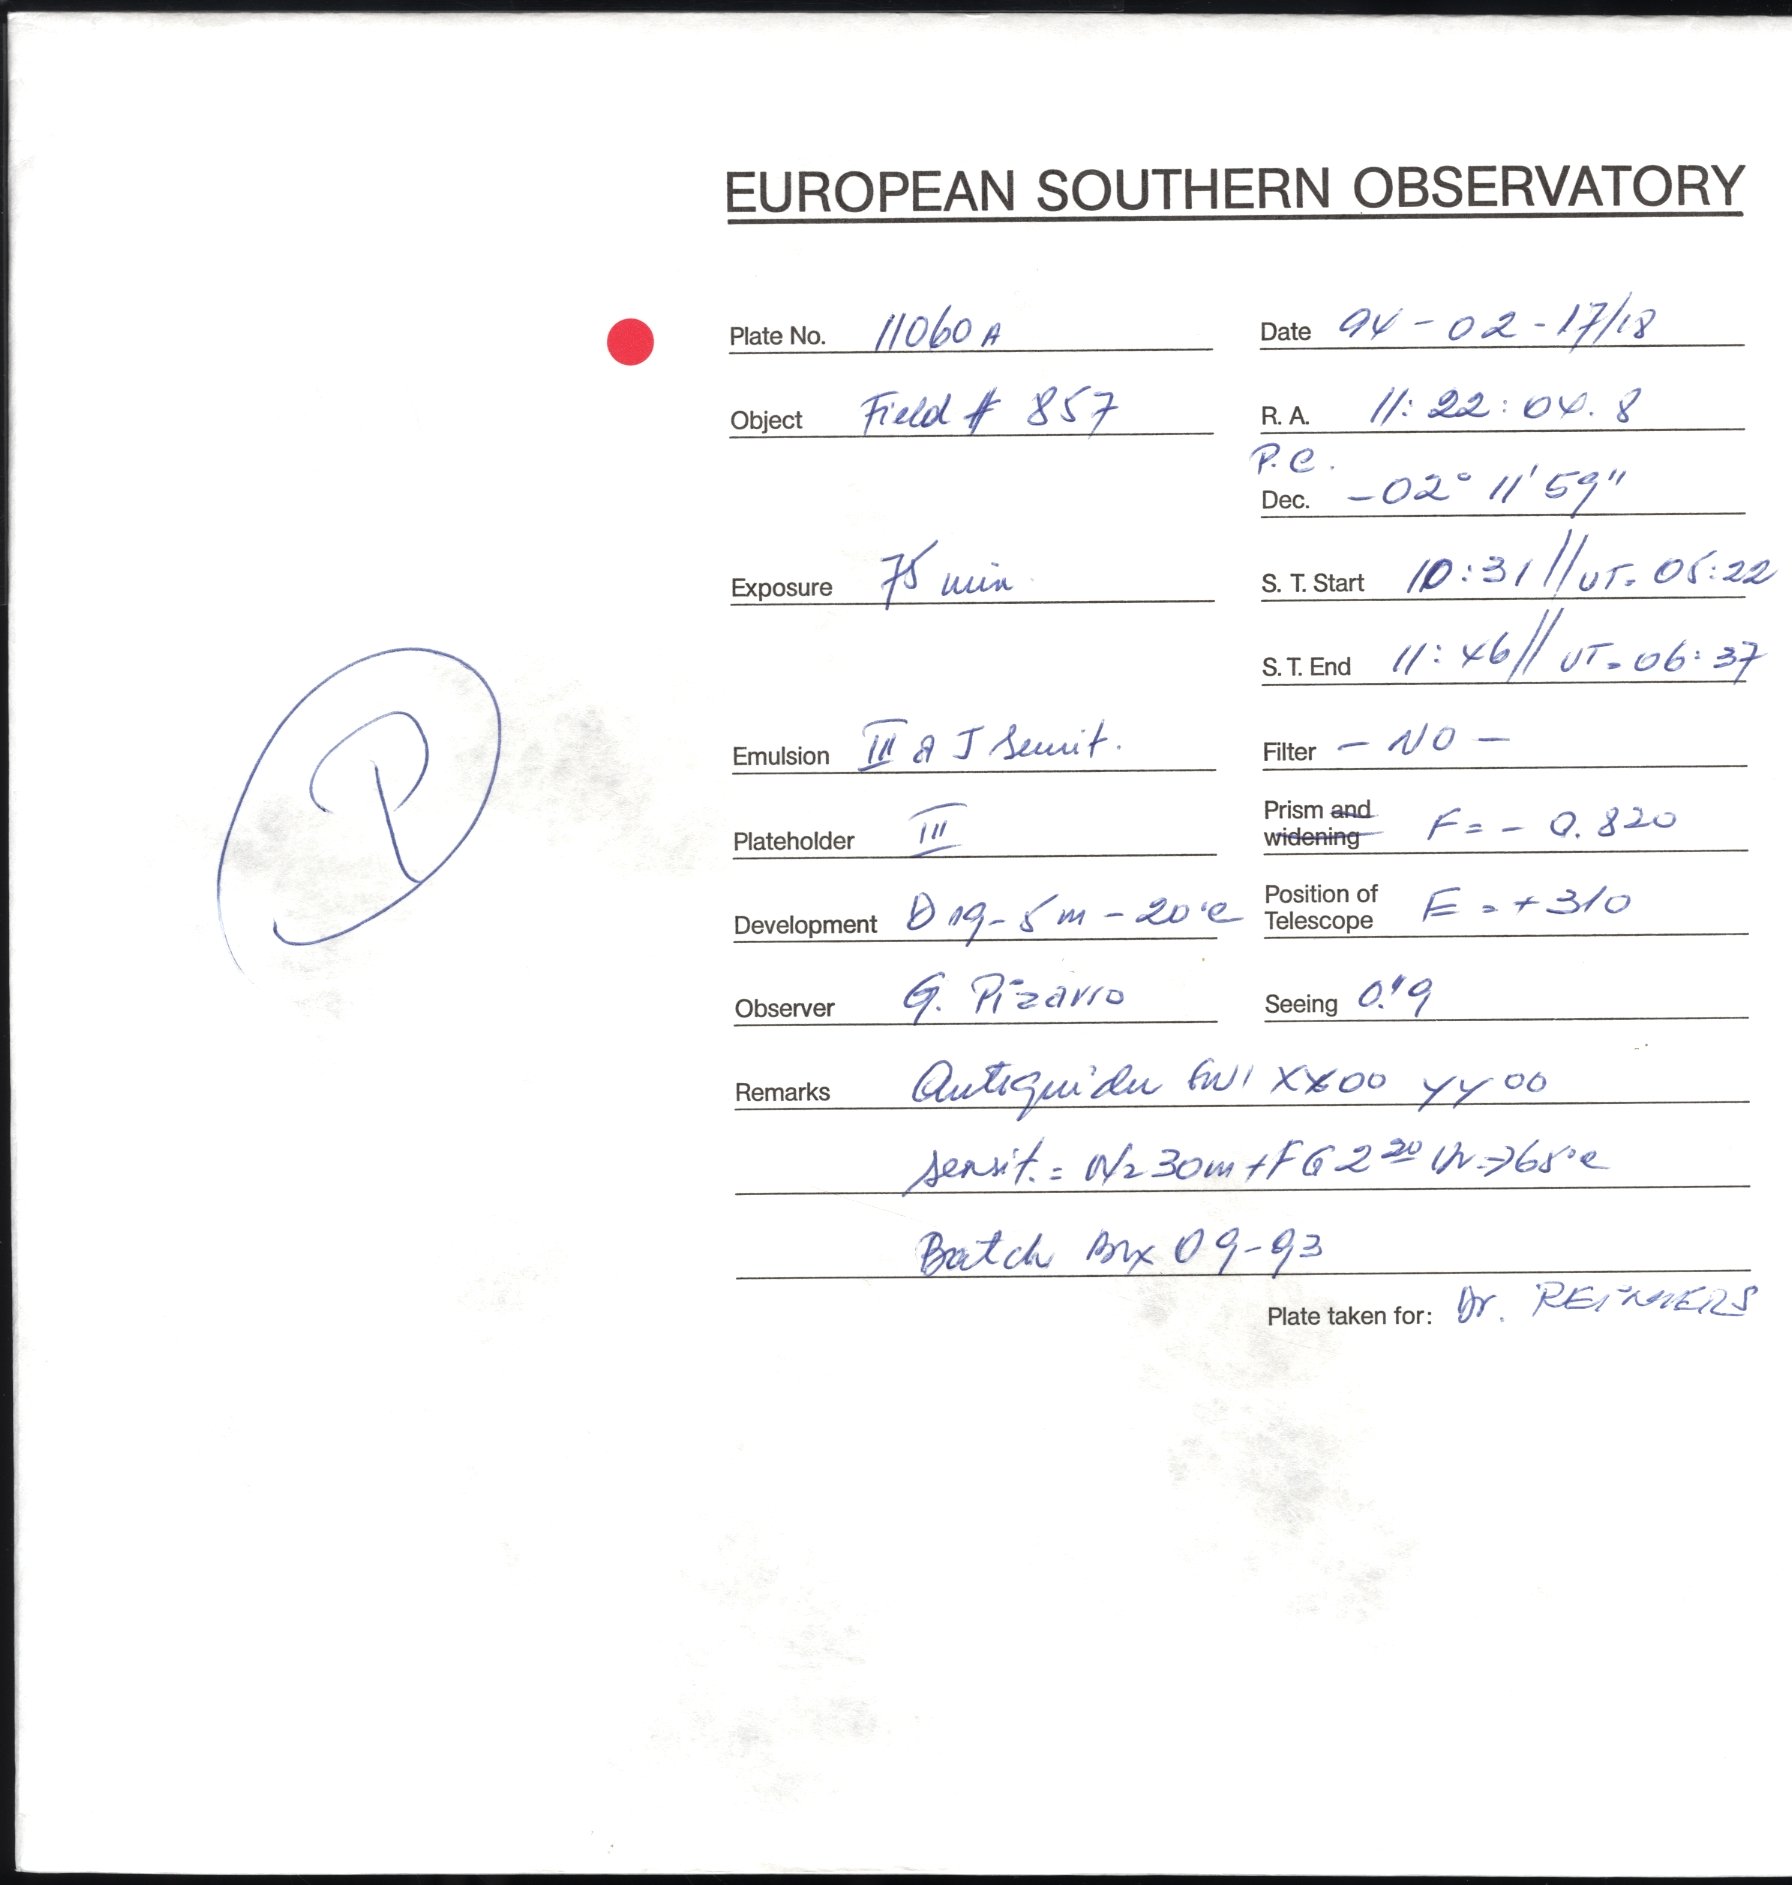 EUROPEAN SOUTHERN OBSERVATORY
Plate No. 11060 A
Date 94 - 02 - 17/18
Object Field # 857
R. A. 11: 22: 04. 8
P.C.
Dec. -02° 11' 59"
Exposure 75 min
S. T. Start 10:31 // UT= 05:22
S. T. End 11:46 // UT= 06:37
Emulsion III a J Sensit.
Filter - NO -
Plateholder III
Prism and widening F = - 0.820
Development D 19 - 5 m - 20°c
Position of Telescope E = + 310
Observer G. Pizarro
Seeing 0."9
P
Remarks Autoguider XX00 YY00
sensit. = N2 30m + FG 2 20 65°c
Batch 09-93
Plate taken for: Dr. REIMERS